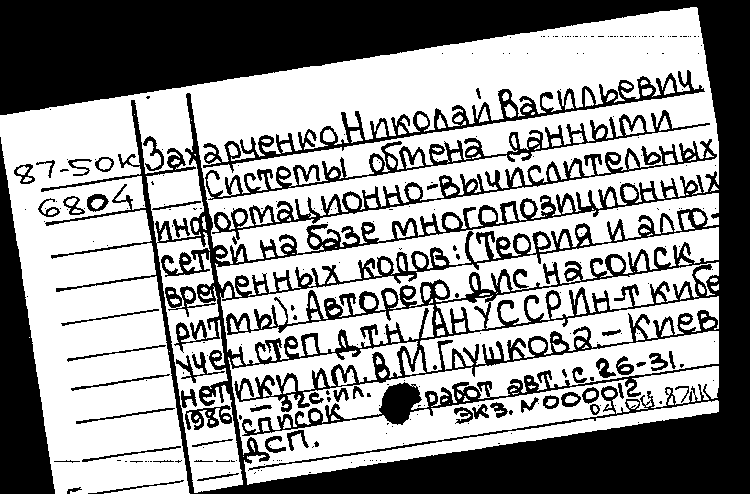 87-50к
6804
Захарченко, Николай Васильевич.
Системы обмена данными
информационно-вычислительных
сетей на базе многопозиционных
временных кодов: (Теория и алго-
ритмы): Автореф. дис. на соиск.
учен. степ. д.т.н. /АН УССР, Ин-т кибе
нетики им. В.М. Глушкова. - Киев
1986. - 32с.: ил.
список работ авт.: с. 26-31.
ДСП. экз. №000012